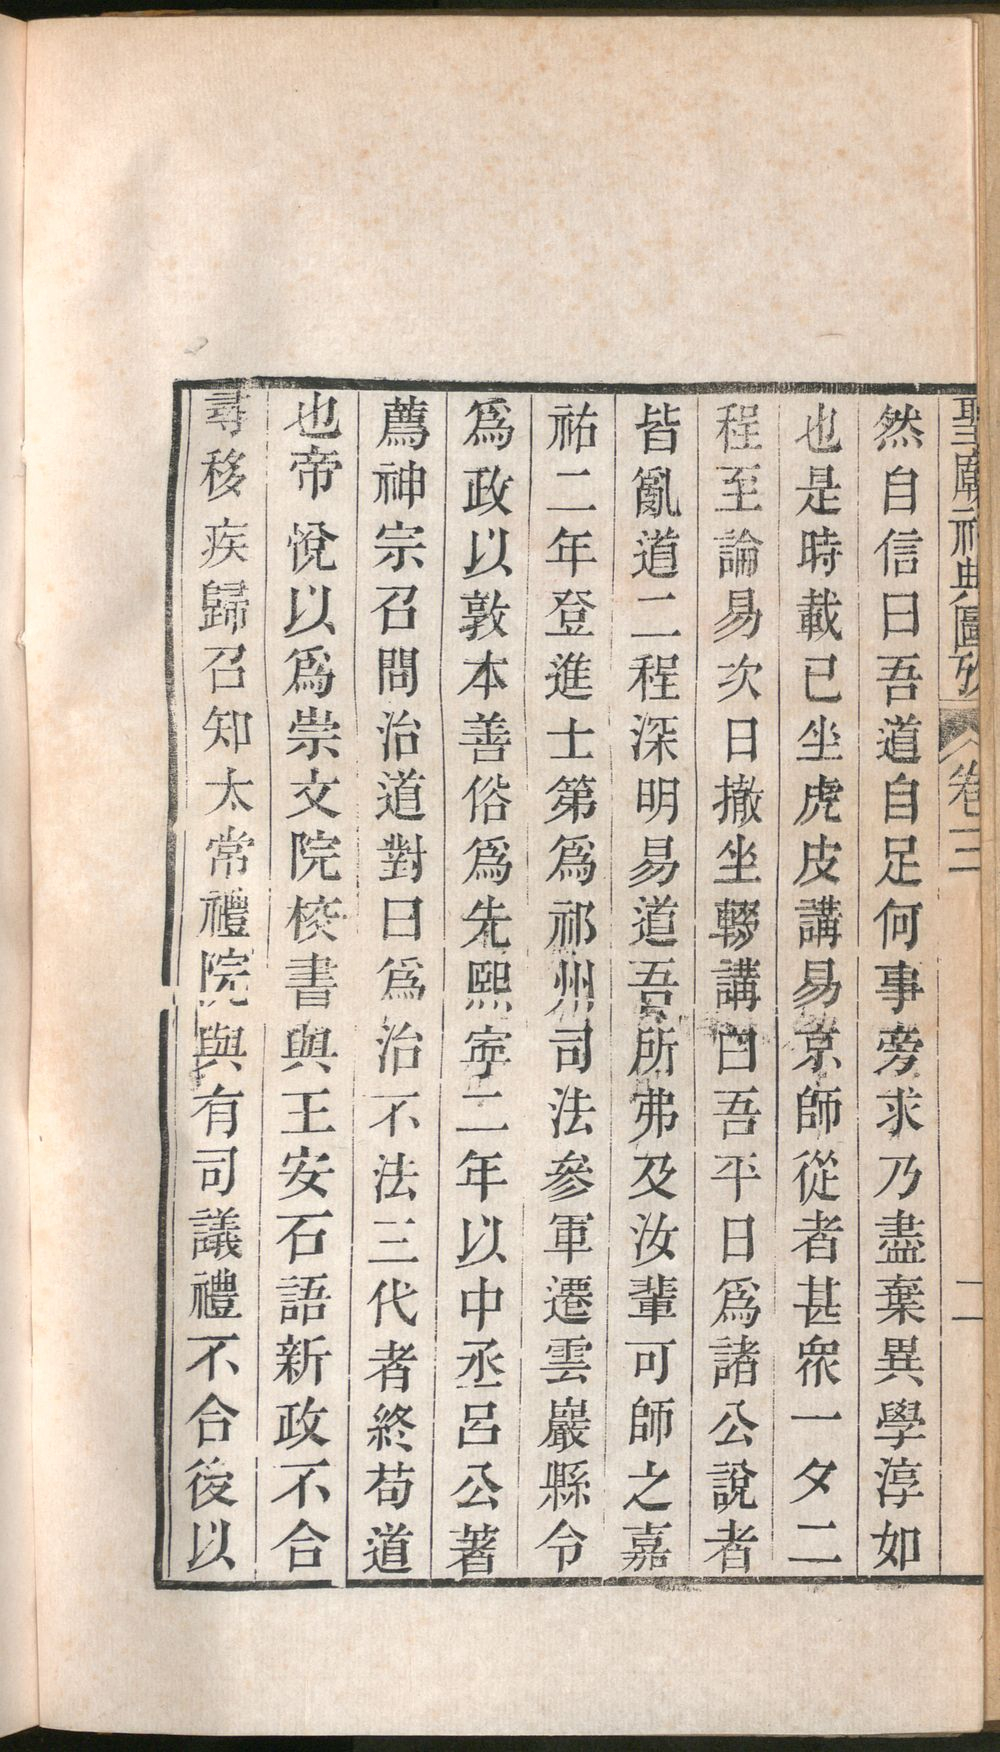 聖廟祀典圖攷 卷三 二
然自信曰吾道自足何事旁求乃盡棄異學淳如
也是時載已坐虎皮講易京師從者甚衆一夕二
程至論易次日撤坐輟講曰吾平日爲諸公說者
皆亂道二程深明易道吾所弗及汝輩可師之嘉
祐二年登進士第爲祁州司法參軍遷雲巖縣令
爲政以敦本善俗爲先熙寧二年以中丞呂公著
薦神宗召問治道對曰爲治不法三代者終苟道
也帝悅以爲崇文院校書與王安石語新政不合
尋移疾歸召知太常禮院與有司議禮不合後以